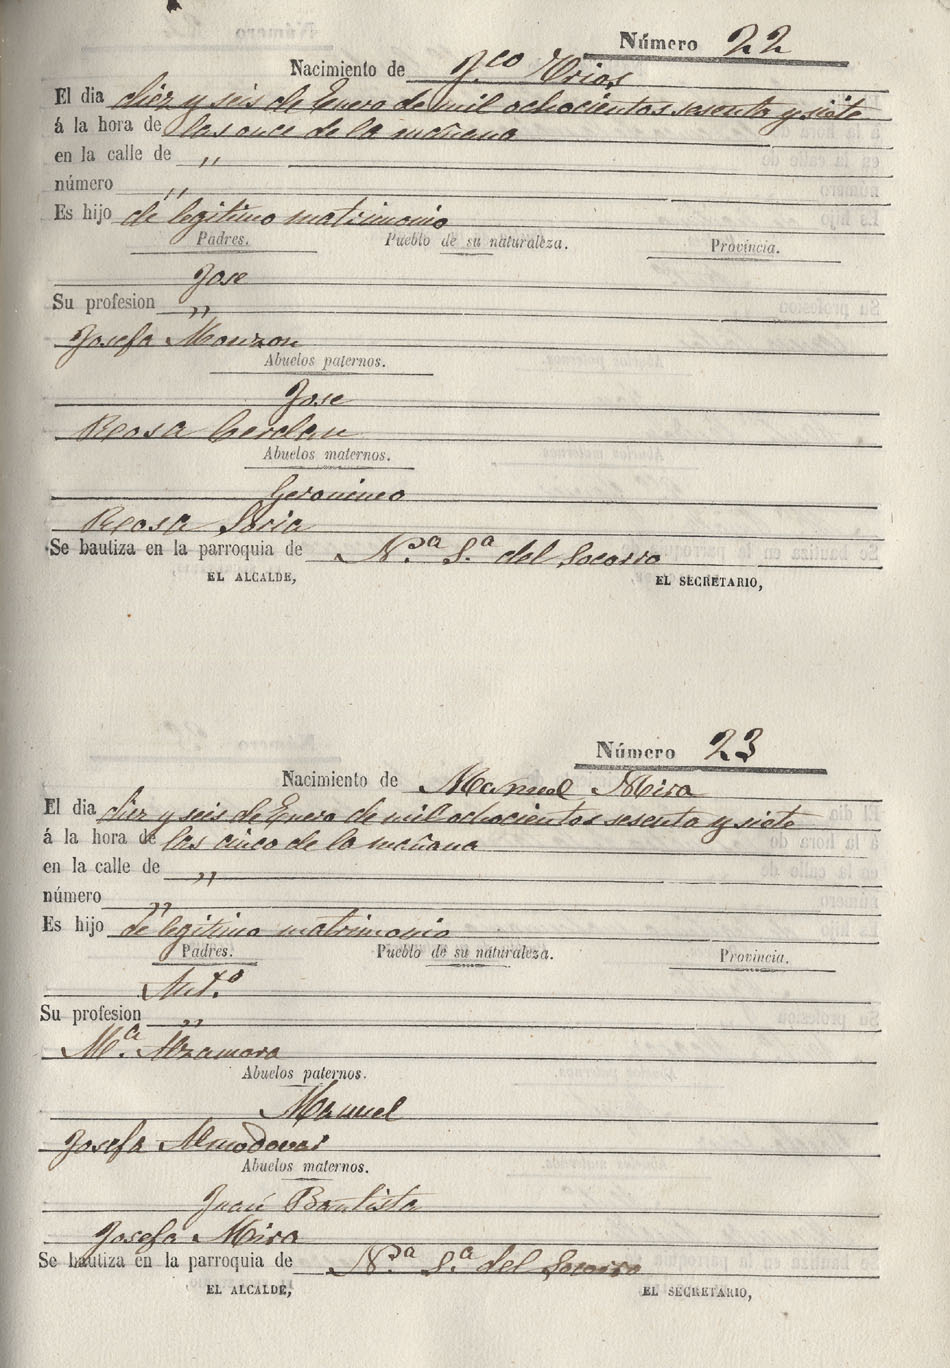 Número 22
Nacimiento de Fco Urios
El dia diez y seis de Enero de mil ochocientos sesenta y siete
á la hora de las once de la mañana
en la calle de ,,
número ,,
Es hijo de legitimo matrimonio
Padres. Pueblo de su naturaleza. Provincia.
Jose
Su profesion ,,
Josefa Monzon
Abuelos paternos.
Jose
Rosa Cerdan
Abuelos maternos.
Geronimo
Rosa Soria
Se bautiza en la parroquia de N.ª S.ª del Socorro
EL ALCALDE, EL SECRETARIO,
Número 23
Nacimiento de Manuel Mira
El dia diez y seis de Enero de mil ochocientos sesenta y siete
á la hora de las cinco de la mañana
en la calle de ,,
número ,,
Es hijo de legitimo matrimonio
Padres. Pueblo de su naturaleza. Provincia.
Ant.º
Su profesion ,,
M.ª Alzamora
Abuelos paternos.
Manuel
Josefa Almodovar
Abuelos maternos.
Juan Bautista
Josefa Mira
Se bautiza en la parroquia de N.ª S.ª del Socorro
EL ALCALDE, EL SECRETARIO,